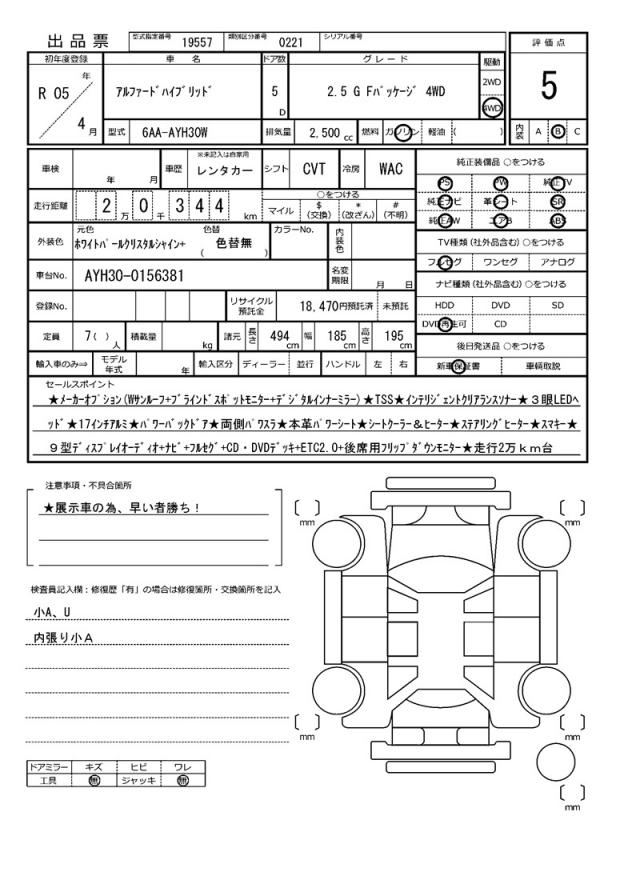 出品票 型式指定番号 19557 類別区分番号 0221 シリアル番号
初年度登録 車名 ドア数 グレード 駆動 評価点
R 05 年 4 月
アルファードハイブリッド 5 D 2.5 G Fパッケージ 4WD
2WD
4WD
5
型式 6AA-AYH30W 排気量 2,500 cc 燃料 ガソリン 軽油 ( )
内装 A B C
車検 年 月 車歴 ※未記入は自家用 レンタカー シフト CVT 冷房 WAC
純正装備品 ○をつける
PS PW 純正TV
純正ナビ 革シート SR
純正AW エアB ABS
走行距離 2 万 0 千 3 4 4 km
○をつける
マイル $ (交換) * (改ざん) # (不明)
外装色 元色 ホワイトパールクリスタルシャイン+ 色替 ( 色替無 ) カラーNo. 内装色
TV種類 (社外品含む) ○をつける
フルセグ ワンセグ アナログ
車台No. AYH30-0156381 名変期限 月 日
ナビ種類 (社外品含む) ○をつける
HDD DVD SD
DVD再生可 CD
登録No. リサイクル預託金 18,470円預託済 未預託
定員 7( ) 人 積載量 kg 諸元 長さ 494 cm 幅 185 cm 高さ 195 cm
後日発送品 ○をつける
新車保証書 車輌取説
輸入車のみ⇒ モデル年式 年 輸入区分 ディーラー 並行 ハンドル 左 右
セールスポイント
★メーカーオプション(Wサンルーフ+ブラインドスポットモニター+デジタルインナーミラー)★TSS★インテリジェントクリアランスソナー★３眼LEDヘ
ッド★17インチアルミ★パワーバックドア★両側パワスラ★本革パワーシート★シートクーラー＆ヒーター★ステアリングヒーター★スマキー★
９型ディスプレイオーディオ+ナビ+フルセグ+CD・DVDデッキ+ETC2.0+後席用フリップダウンモニター★走行2万ｋｍ台
注意事項・不具合箇所
★展示車の為、早い者勝ち！
検査員記入欄：修復歴「有」の場合は修復箇所・交換箇所を記入
小A、U
内張り小Ａ
ドアミラー キズ ヒビ ワレ
工具 無 ジャッキ 無
mm
mm
mm
mm
mm